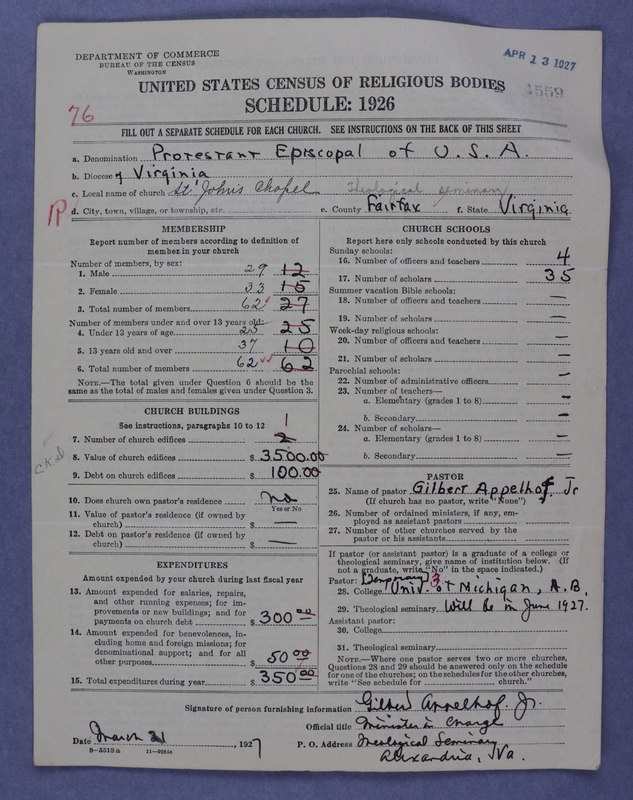 DEPARTMENT OF COMMERCE
BUREAU OF THE CENSUS
WASHINGTON
APR 13 1927
4559
UNITED STATES CENSUS OF RELIGIOUS BODIES
SCHEDULE: 1926
76
FILL OUT A SEPARATE SCHEDULE FOR EACH CHURCH. SEE INSTRUCTIONS ON THE BACK OF THIS SHEET
a. Denomination Protestant Episcopal of U.S.A.
b. Diocese of Virginia
c. Local name of church St. John's Chapel Theological Seminary
1P
d. City, town, village, or township, etc. e. County Fairfax f. State Virginia
MEMBERSHIP
Report number of members according to definition of member in your church
Number of members, by sex:
1. Male 29 12
2. Female 33 15
3. Total number of members 62 27
Number of members under and over 13 years old:
4. Under 13 years of age 25 25
5. 13 years old and over 37 10
6. Total number of members 62 62
NOTE.—The total given under Question 6 should be the same as the total of males and females given under Question 3.
CHURCH BUILDINGS
See instructions, paragraphs 10 to 12
7. Number of church edifices 2 1
8. Value of church edifices $ 3500.00
9. Debt on church edifices $ 100.00
10. Does church own pastor's residence no
Yes or No
11. Value of pastor's residence (if owned by church) $ —
12. Debt on pastor's residence (if owned by church) $ —
EXPENDITURES
Amount expended by your church during last fiscal year
13. Amount expended for salaries, repairs, and other running expenses; for improvements or new buildings; and for payments on church debt $ 300 00
14. Amount expended for benevolences, including home and foreign missions; for denominational support; and for all other purposes $ 50 00
15. Total expenditures during year $ 350 00
CHURCH SCHOOLS
Report here only schools conducted by this church
Sunday schools:
16. Number of officers and teachers 4
17. Number of scholars 35
Summer vacation Bible schools:
18. Number of officers and teachers —
19. Number of scholars —
Week-day religious schools:
20. Number of officers and teachers —
21. Number of scholars —
Parochial schools:
22. Number of administrative officers —
23. Number of teachers—
a. Elementary (grades 1 to 8) —
b. Secondary —
24. Number of scholars—
a. Elementary (grades 1 to 8) —
b. Secondary —
PASTOR
25. Name of pastor Gilbert Appelhof, Jr
(If church has no pastor, write "None")
26. Number of ordained ministers, if any, employed as assistant pastors
27. Number of other churches served by the pastor or his assistants
If pastor (or assistant pastor) is a graduate of a college or theological seminary, give name of institution below. (If not a graduate, write "No" in the space indicated.)
Pastor: 3
28. College Univ. of Michigan, A.B.
29. Theological seminary Will be in June 1927.
Assistant pastor:
30. College
31. Theological seminary
NOTE.—Where one pastor serves two or more churches, Questions 28 and 29 should be answered only on the schedule for one of the churches; on the schedules for the other churches, write "See schedule for church."
Signature of person furnishing information Gilbert Appelhof. Jr.
Official title Minister in Charge
Date March 31, 1927 P. O. Address Theological Seminary
8—5518a 11—9884a Alexandria, Va.